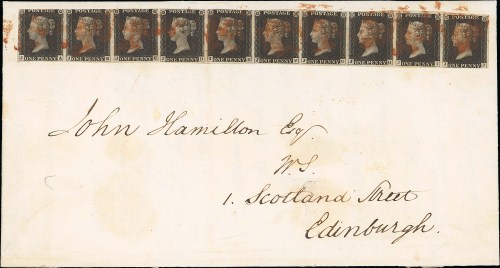 POSTAGE POSTAGE POSTAGE POSTAGE POSTAGE POSTAGE POSTAGE POSTAGE POSTAGE POSTAGE
ONE PENNY ONE PENNY ONE PENNY ONE PENNY ONE PENNY ONE PENNY ONE PENNY ONE PENNY ONE PENNY ONE PENNY
John Hamilton Esqr.
W.S.
1. Scotland Street
Edinburgh.